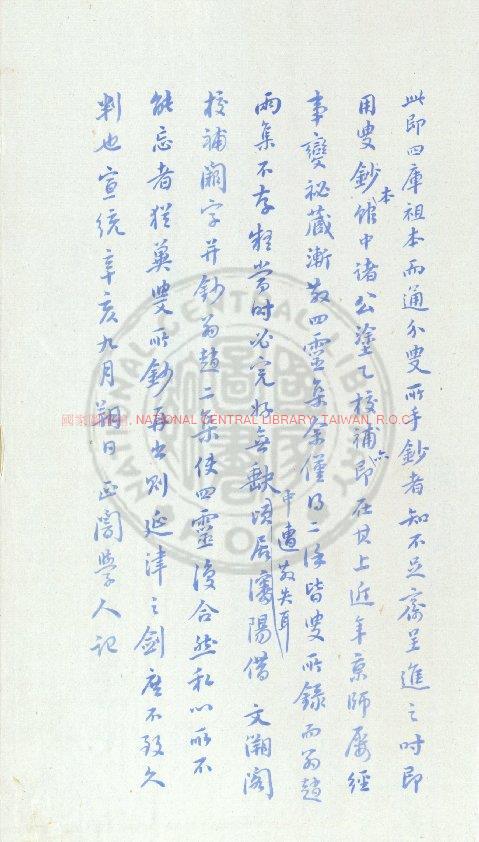 此即四庫祖本而通介叟所手鈔者知不足齋呈進之時即
用叟鈔本館中諸公塗乙校補亦即在其上近年京師屢經
事變祕藏漸散四靈集余僅得二徐皆叟所錄而翁趙
兩集不存疑當時必完好無缺中遭散失耳頃居瀋陽借文溯閣
校補闕字并鈔翁趙二集使四靈復合然私心所不
能忘者猶冀叟所鈔再出則延津之劍庶不致久
判也宣統辛亥九月朔日正闇學人記
國家圖書館, NATIONAL CENTRAL LIBRARY, TAIWAN, R.O.C